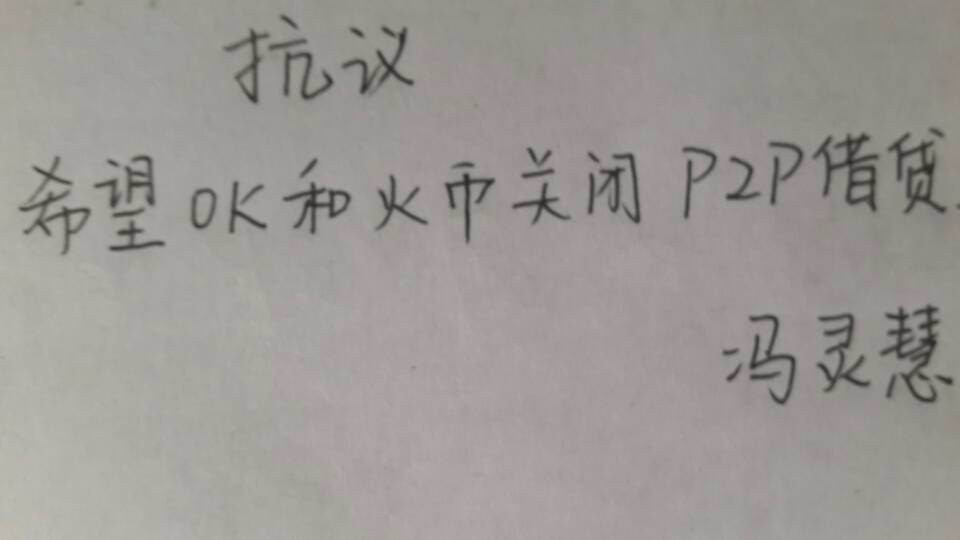 抗议
希望OK和火币关闭P2P借贷.
冯灵慧